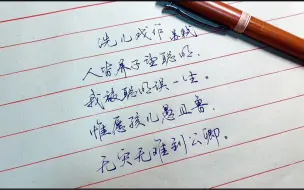 洗儿戏作 苏轼
人皆养子望聪明,
我被聪明误一生。
惟愿孩儿愚且鲁,
无灾无难到公卿。